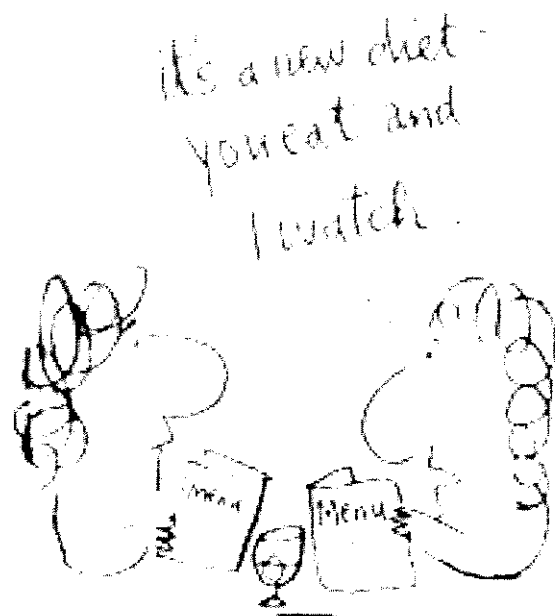 it's a new diet -
you eat and
I watch.
menu
Menu